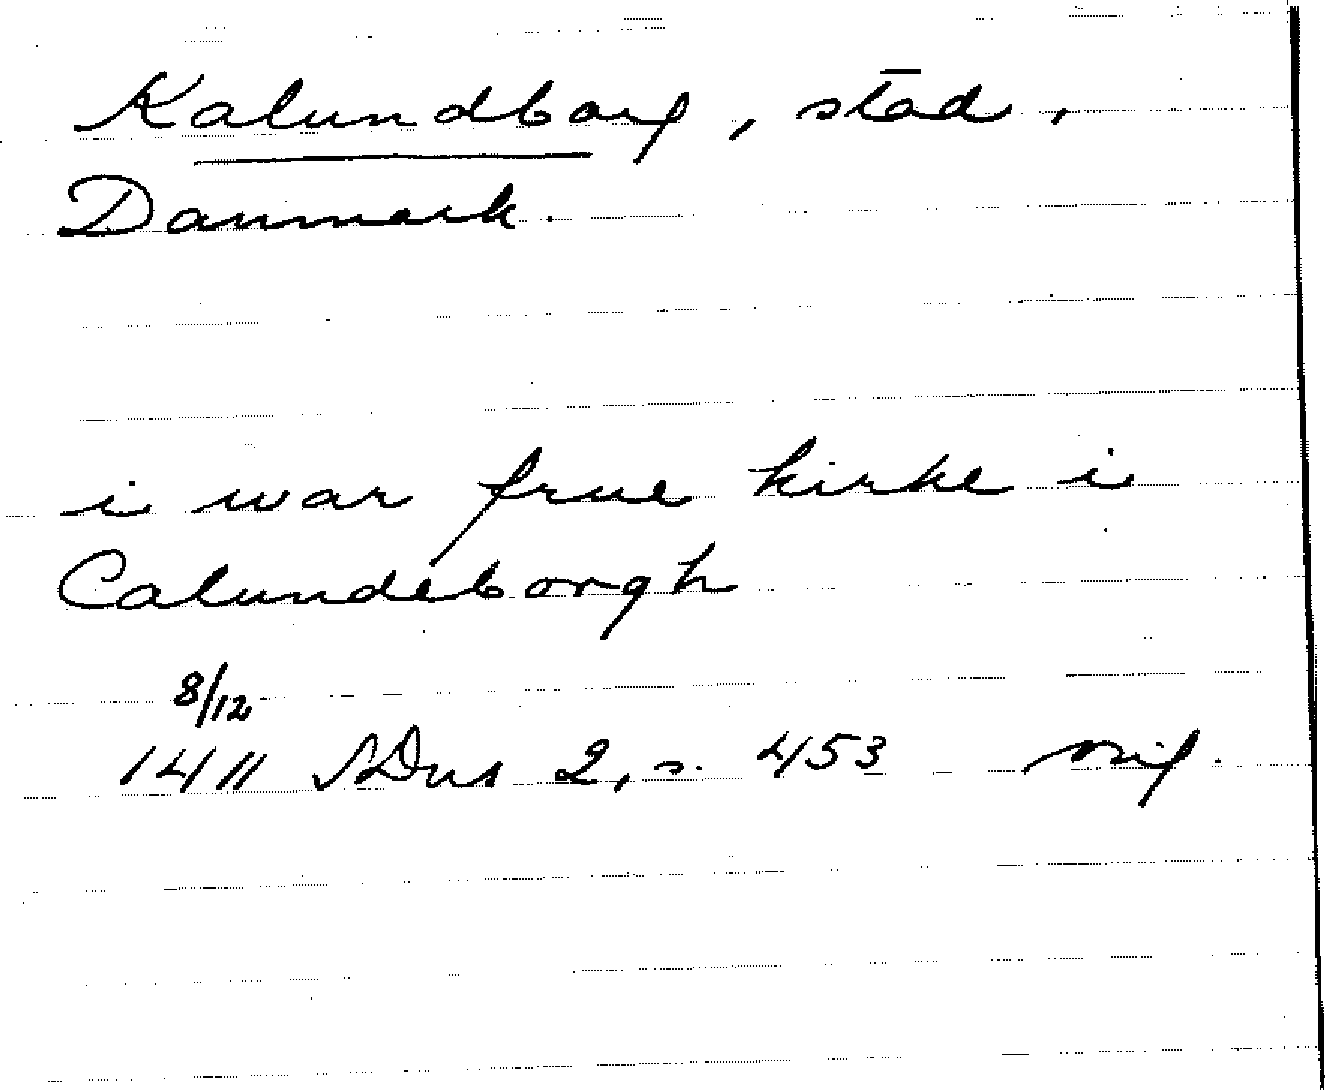 Kalundborg, stad,
Danmark.
i war frue kirke i
Calundeborgh
8/12
1411 SDns 2, s. 453 orig.